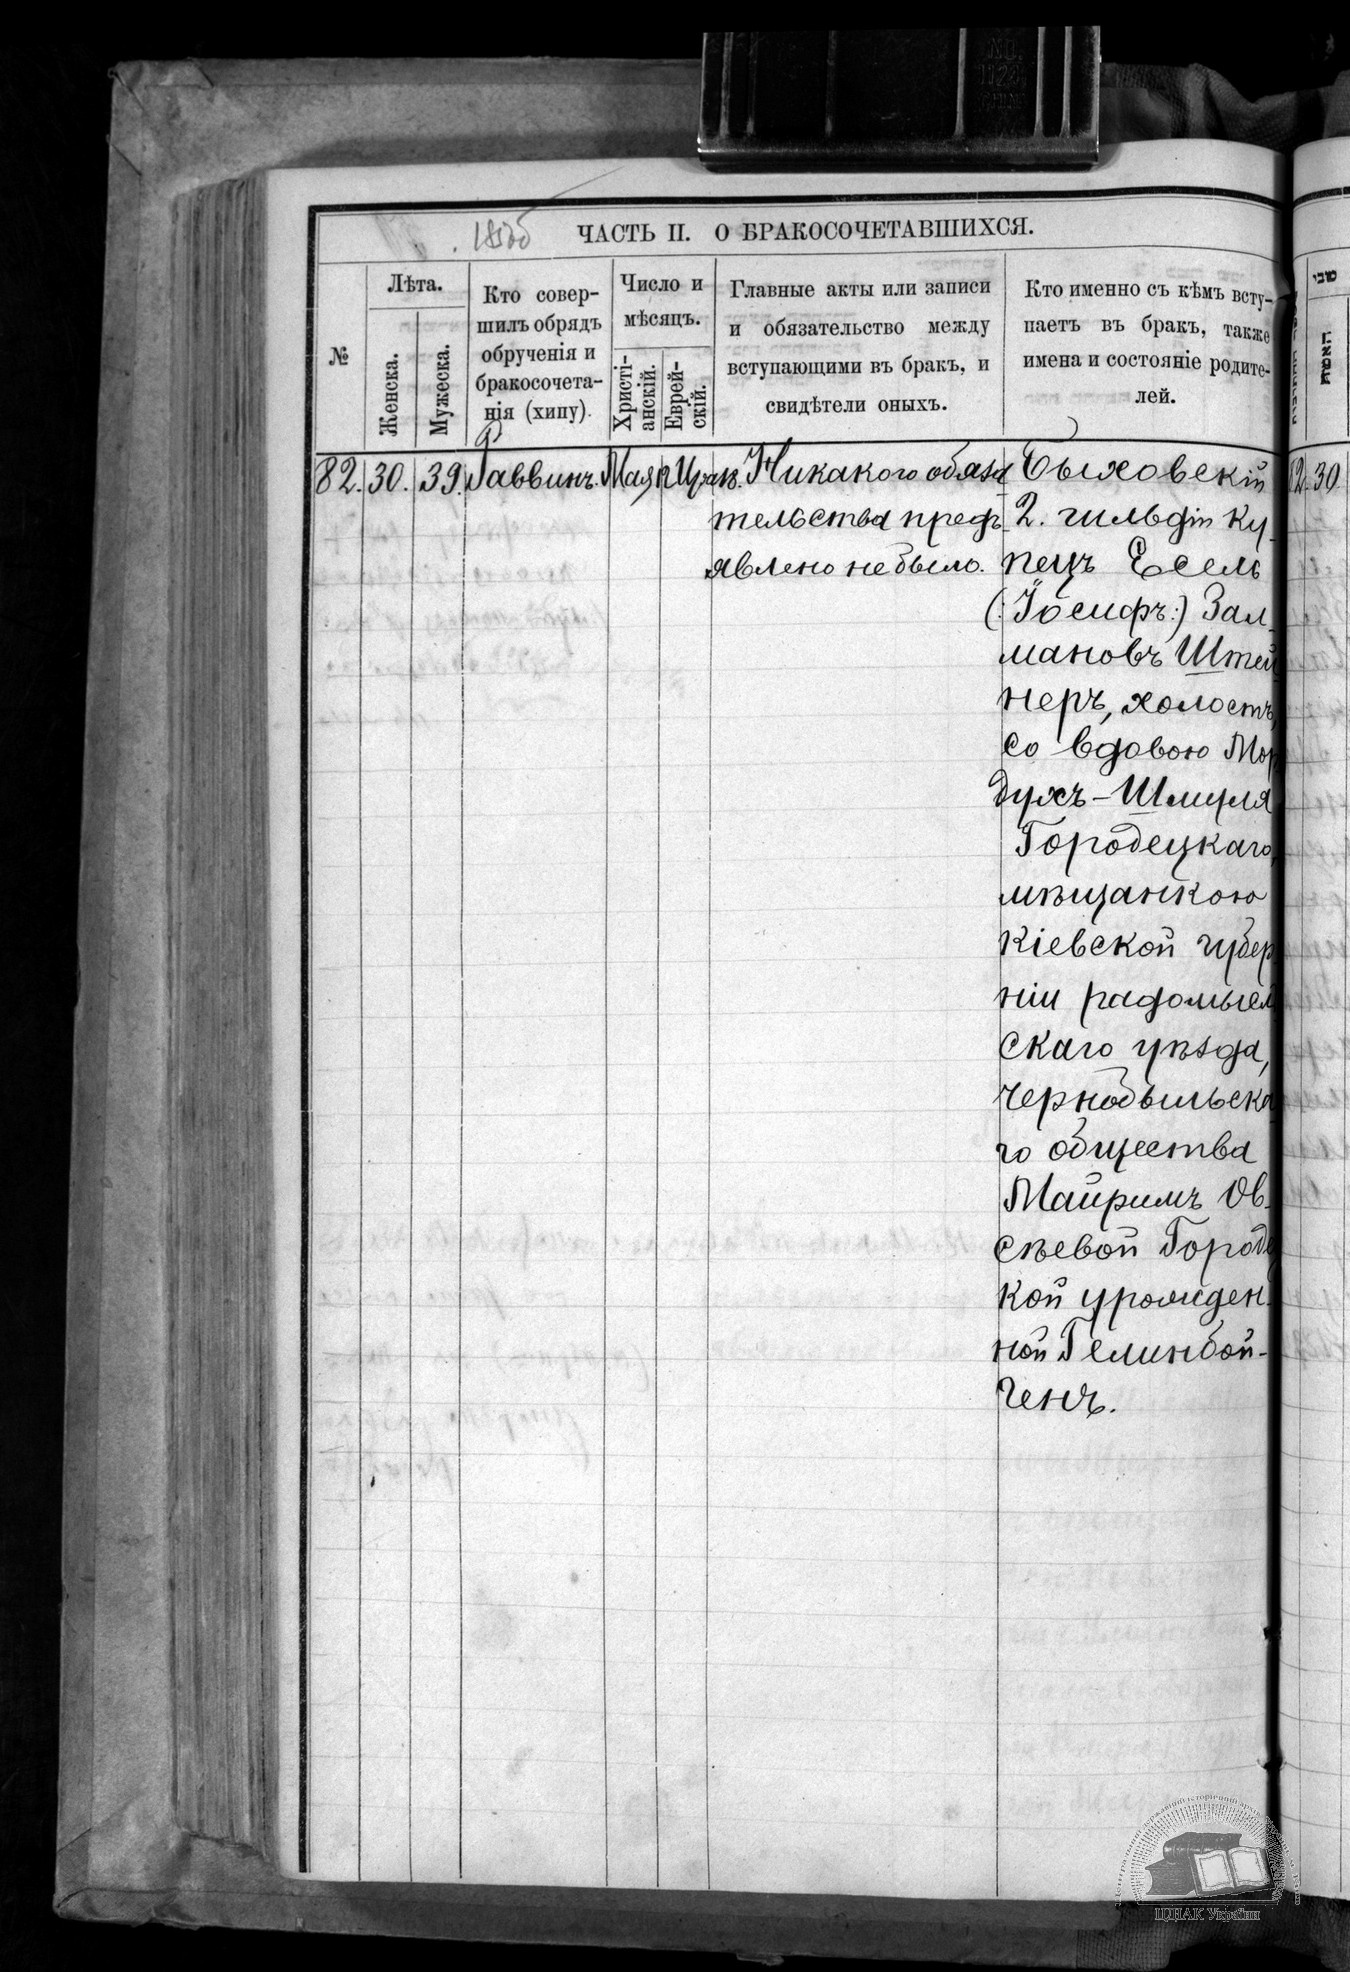 ЧАСТЬ II. О БРАКОСОЧЕТАВШИХСЯ.
№
Лѣта.
Женска.
Мужеска.
Кто совер-
шилъ обрядъ
обрученія и
бракосочета-
нія (хипу).
Число и
мѣсяцъ.
Христі-
анскій.
Еврей-
скій.
Главные акты или записи
и обязательство между
вступающими въ бракъ, и
свидѣтели оныхъ.
Кто именно съ кѣмъ всту-
паетъ въ бракъ, также
имена и состояніе родите-
лей.
82. 30. 39. Раввинъ. Мая
Никакого обяза-
тельства предъ-
явлено небыло.
Быховскій
2. гильдіи Ку-
пецъ Есель
(:Іосифъ:) Зал-
мановъ Штей
неръ, холостъ,
со вдовою Мор
духъ-Шмуля
Городецкаго,
мѣщанкою
Кіевской губер
ніи радомысл
скаго уѣзда,
Чернобыльска
го общества
Майримъ Ов-
сѣевой Городец
кой урожден-
ной Гелинбой-
ченъ.
82. 30
ЦДІАК України